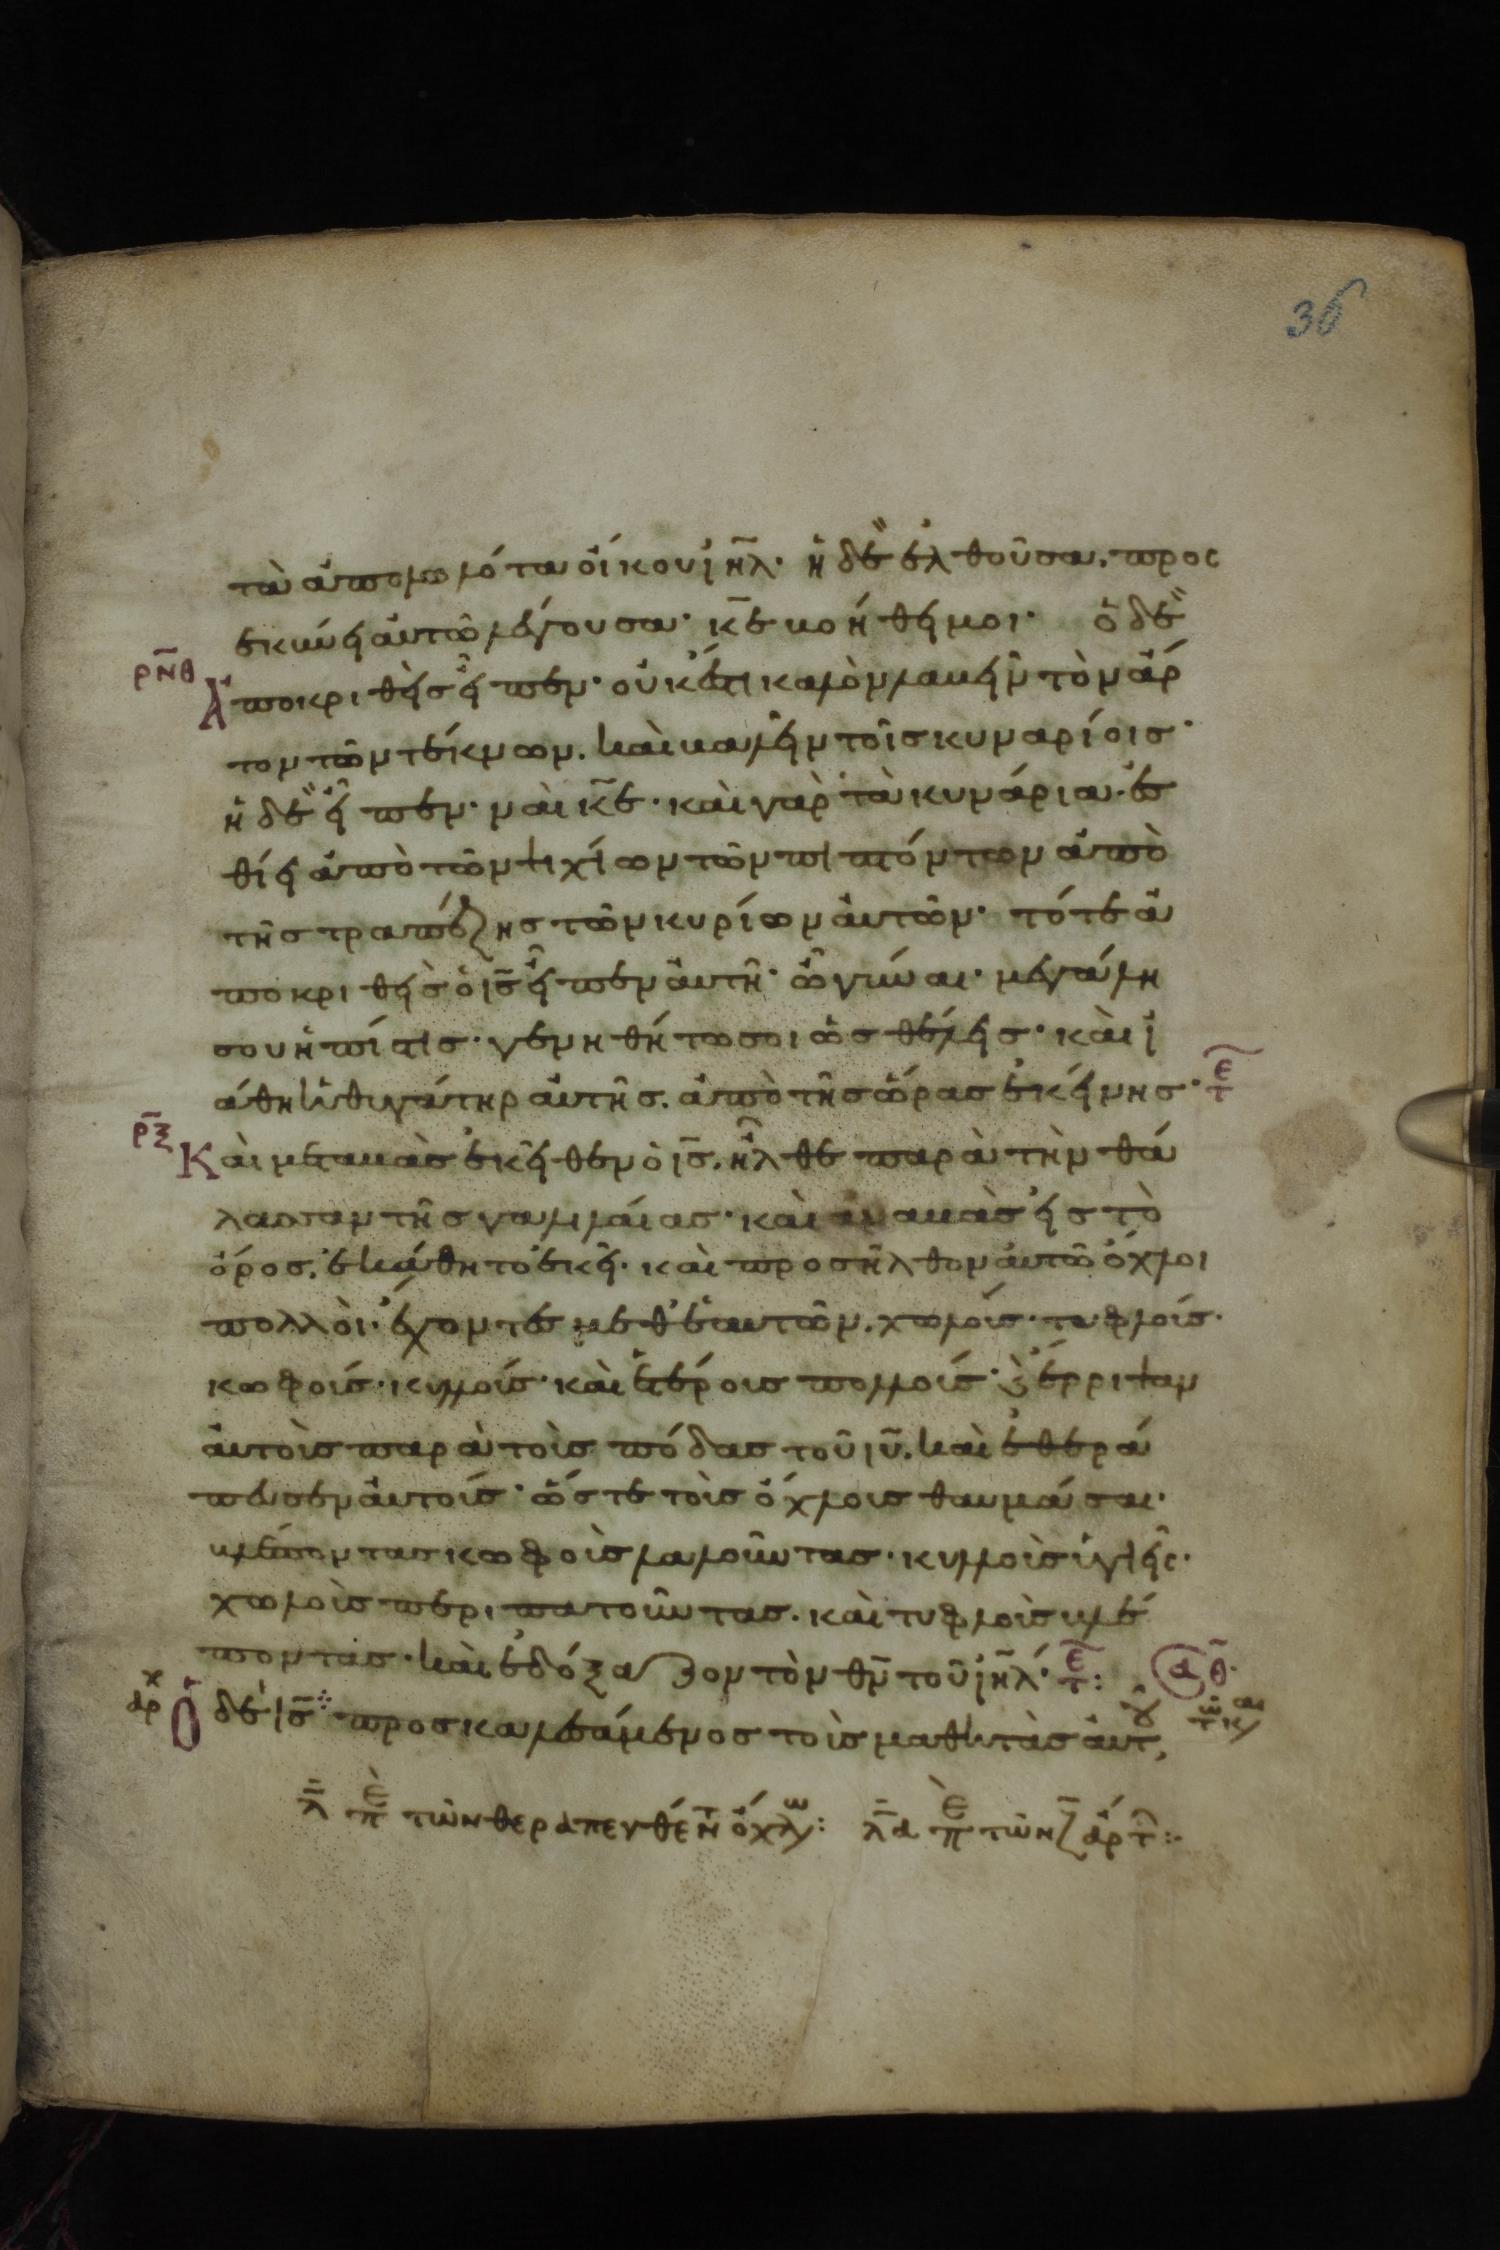 36
τὰ ἀπολωλότα οἴκου ἰηλ· ἡ δὲ ἐλθοῦσα, προς
εκύνει αὐτῶ λέγουσα· κε βοήθει μοι· ὁ δὲ
ρνθ ἀποκριθεὶς εἶπεν· οὐκ ἔστι καλὸν λαβεῖν τὸν ἄρ
τον τῶν τέκνων. καὶ βαλεῖν τοῖς κυναρίοις·
ἡ δὲ εἶπεν· ναὶ κε· καὶ γὰρ τὰ κυνάρια ἐσ
θίει ἀπὸ τῶν ψιχίων τῶν πιπτόντων ἀπὸ
τῆς τραπέζης τῶν κυρίων αὐτῶν· τότε ἀ
ποκριθεὶς ὁ ις εἶπεν αὐτῆ· ὦ γύναι· μεγάλη
σου ἡ πίστις· γενηθήτω σοι ὡς θέλεις· καὶ ἰ
άθη ἡ θυγάτηρ αὐτῆς. ἀπὸ τῆς ὥρας ἐκείνης· ετ
ρξ Καὶ μεταβὰς ἐκεῖθεν ὁ ις. ἦλθε παρὰ τὴν θά
λασσαν τῆς γαλιλαίας· καὶ ἀναβὰς εἰς τὸ
ὄρος. ἐκάθητο ἐκεῖ· καὶ προσῆλθον αὐτῶ ὄχλοι
πολλοὶ· ἔχοντες μεθ' ἑαυτῶν. χωλούς· τυφλούς·
κωφούς· κυλλούς· καὶ ἑτέρους πολλούς· ϗ ἔρριψαν
αὐτοὺς παρὰ τοὺς πόδας τοῦ ιυ. καὶ ἐθερά
πευσεν αὐτούς· ὥστε τοὺς ὄχλους θαυμάσαι·
βλέποντας κωφοὺς λαλοῦντας· κυλλοὺς ὑγιεῖς·
χωλοὺς περιπατοῦντας· καὶ τυφλοὺς βλέ
ποντας· καὶ ἐδόξαζον τὸν θν τοῦ ιηλ· ετ:
αρχ Ὁ δὲ ις προσκαλεσάμενος τοὺς μαθητὰς αὐτοῦ,
λ επ τῶν θεραπευθέντ ὄχλω: λα επ τῶν ζ ἄρτ: